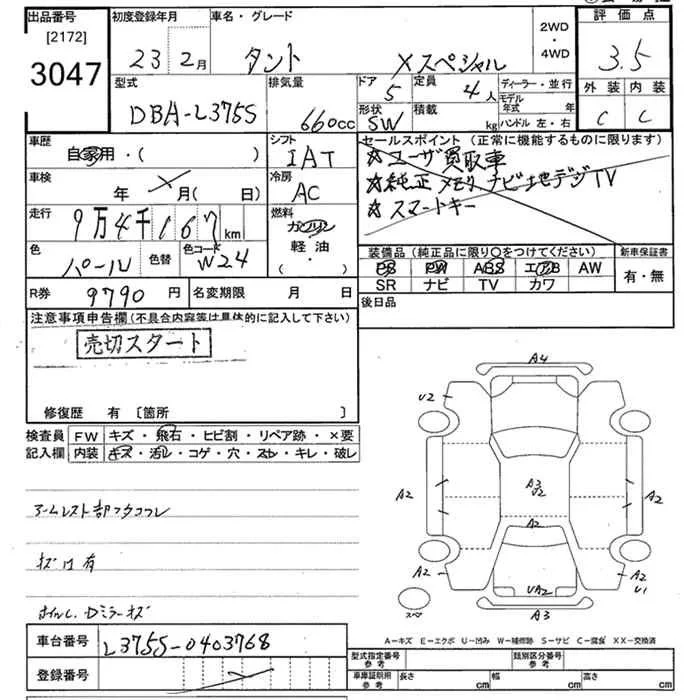 出品番号 初度登録年月 車名・グレード 2WD・4WD 評価点
[2172]
3047 23年 2月 タント Xスペシャル 3.5
型式 排気量 ドア 定員 ディーラー・並行 外装 内装
DBA-L375S 660cc 5 4人 モデル年式 年 C C
形状 積載 ハンドル 左・右
SW kg
車歴 シフト セールスポイント (正常に機能するものに限ります)
自家用・( ) IAT ☆ユーザ買取車
車検 冷房 ☆純正メモリナビ地デジTV
年 月(日) AC ☆スマートキー
走行 燃料
9万4千167km ガソリン
軽油
・( )
色 パール 色替 色コード W24
装備品 (純正品に限り○をつけてください) 新車保証書
PS PW ABS エアB AW 有・無
SR ナビ TV カワ
R券 9790円 名変期限 月 日 後日品
注意事項申告欄(不具合内容等は具体的に記入して下さい)
売切スタート
修復歴 有 〔箇所 〕
検査員 FW キズ・飛石・ヒビ割・リペア跡・×要
記入欄 内装 キズ・汚レ・コゲ・穴・スレ・キレ・破レ
アームレスト部フタコワレ
キズ凹有
ホイル、Dミラーキズ
A4
U2
A3
U2
A2
A2
A2
A2
UA2
A2
U1
スペ
A3
A-キズ E-エクボ U-凹み W-補修跡 S-サビ C-腐食 XX-交換済
車台番号 L375S-0403768
型式指定番号 参考 類別区分番号 参考
登録番号
車庫証明用 参考 長さ cm 幅 cm 高さ cm